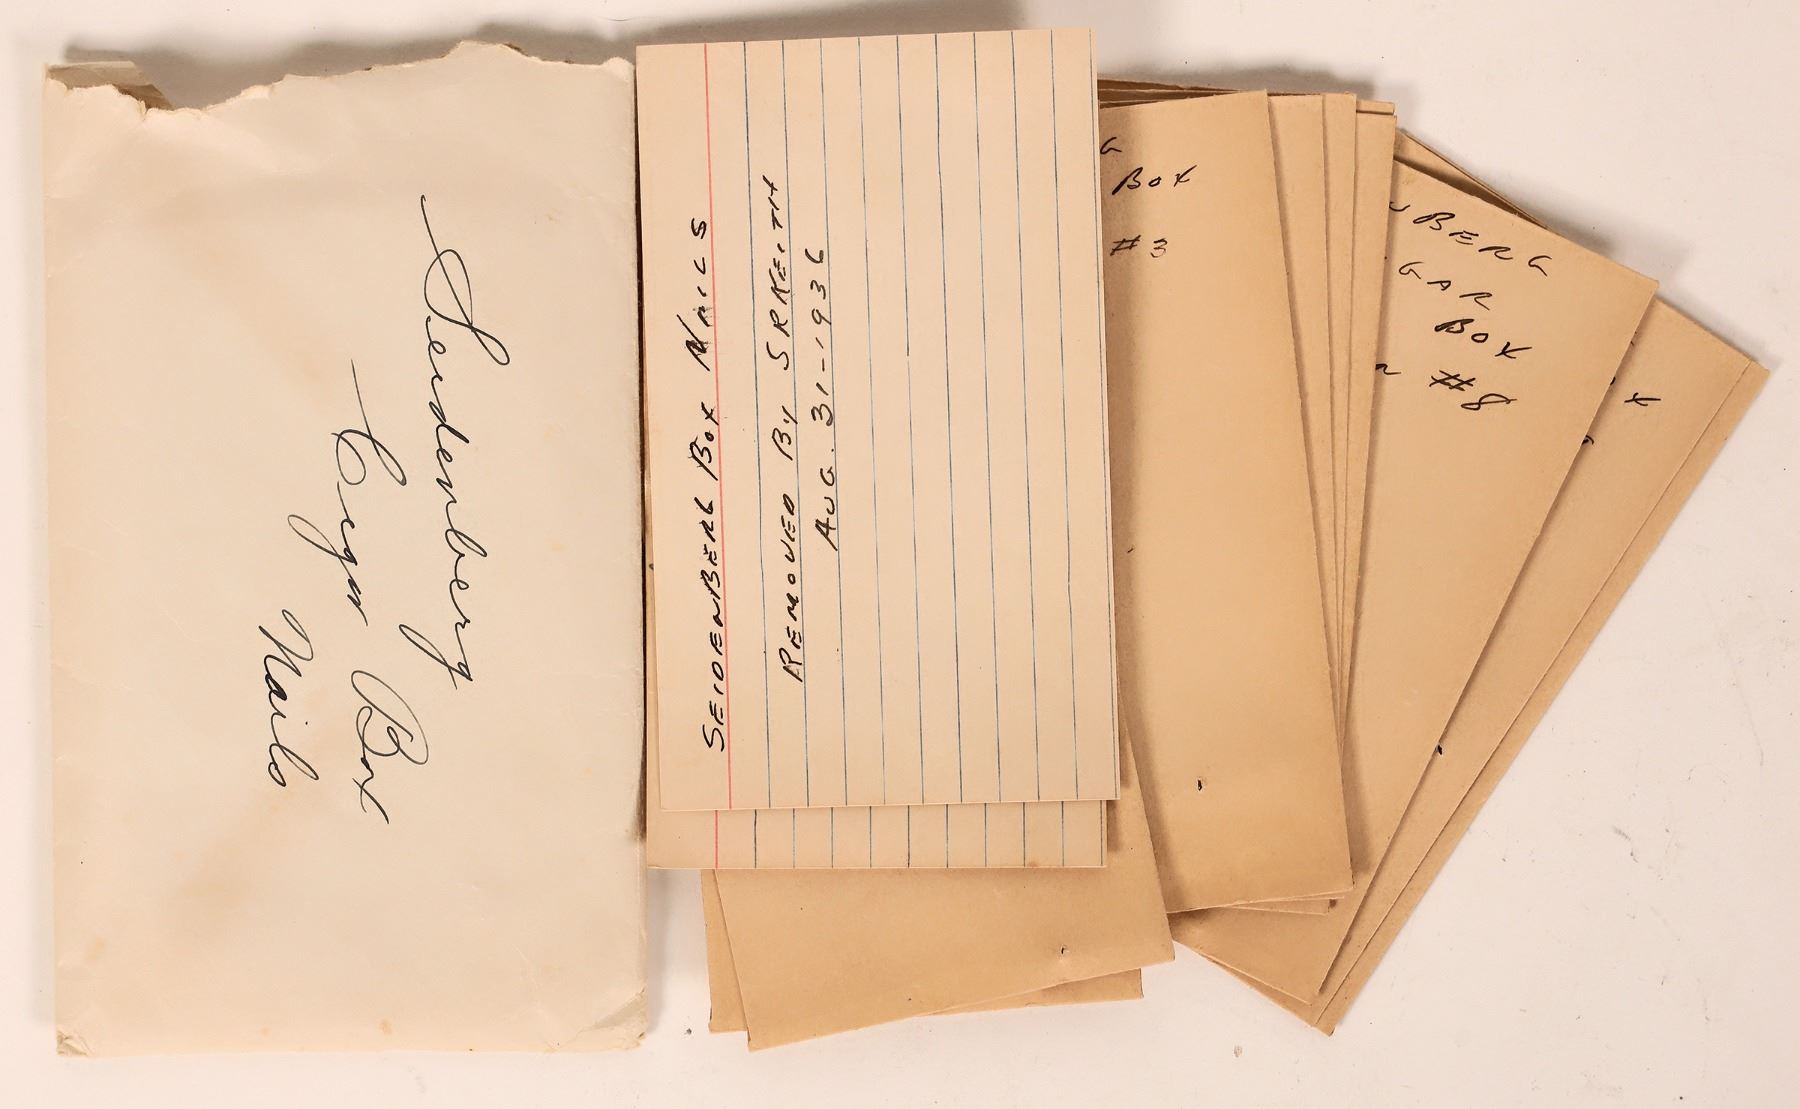 Seidenberg
Cigar Box
Nails
SEIDENBERG BOX NAILS
REMOVED BY SRKEITH
AUG. 31-1936
G
BOX
#3
BERG
GAR
BOX
#8
X